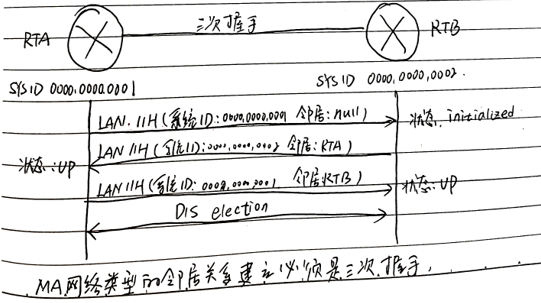 三次握手
RTA
RTB
SYS ID 0000.0000.0001
SYS ID 0000.0000.0002.
LAN. IIH (系统ID: 0000.0000.0001 邻居: null)
状态: initialized
LAN IIH (系统ID: 0000.0000.0002 邻居: RTA)
状态: UP
LAN IIH (系统ID: 0000.0000.0001 邻居: RTB)
状态: UP
DIS election
MA网络类型的邻居关系建立必须是三次握手.